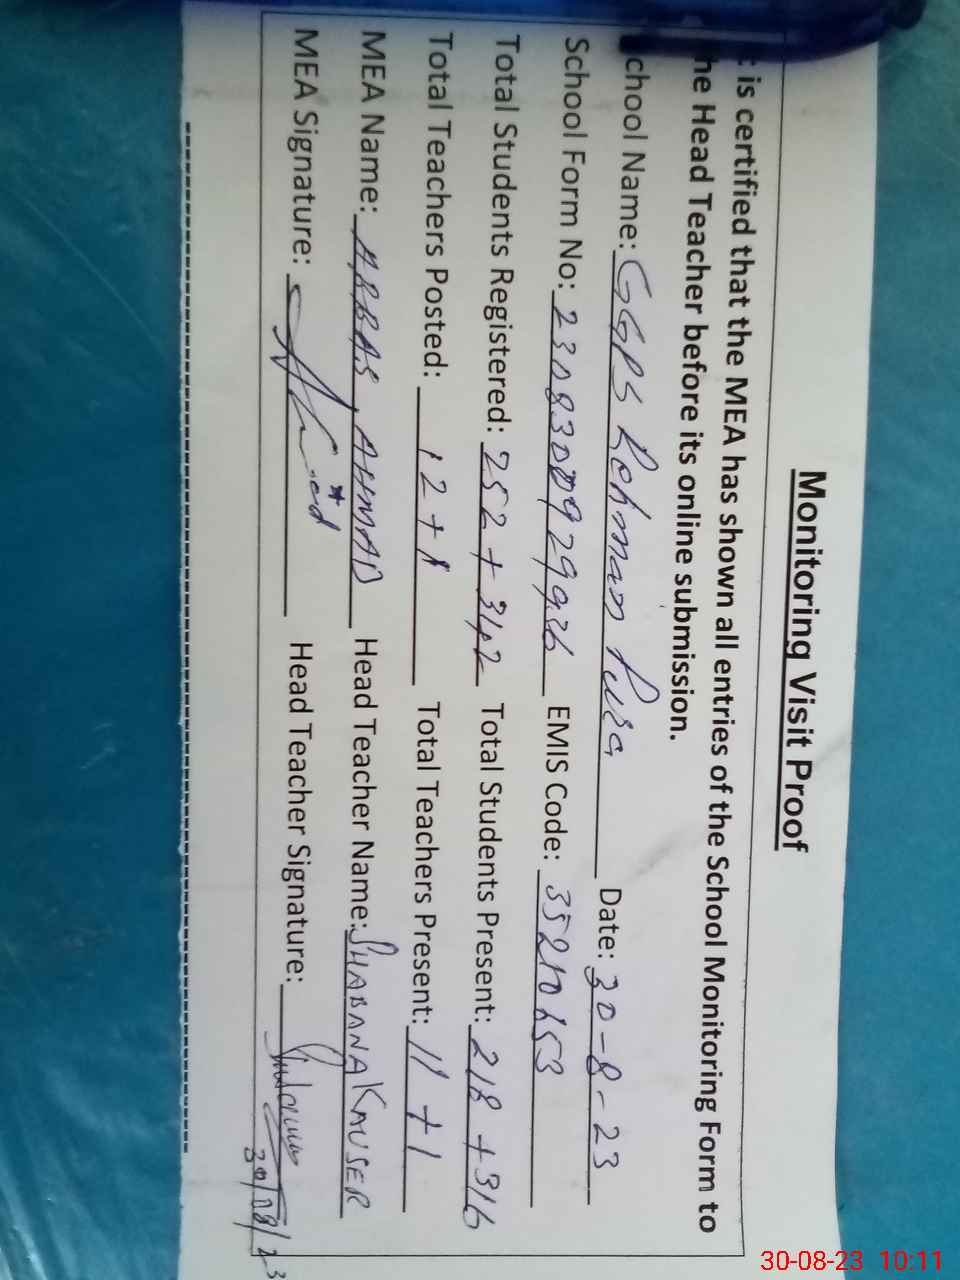 Monitoring Visit Proof
t is certified that the MEA has shown all entries of the School Monitoring Form to
he Head Teacher before its online submission.
chool Name: GGPS Rehman Pura Date: 30-8-23
School Form No: EMIS Code:
Total Students Registered: 252 + 342 Total Students Present: 218 + 316
Total Teachers Posted: 12 + 1 Total Teachers Present: 11 + 1
MEA Name: ABBAS AHMAD Head Teacher Name: SHABANA KAUSER
MEA Signature: Head Teacher Signature:
30/08/23
30-08-23 10:11